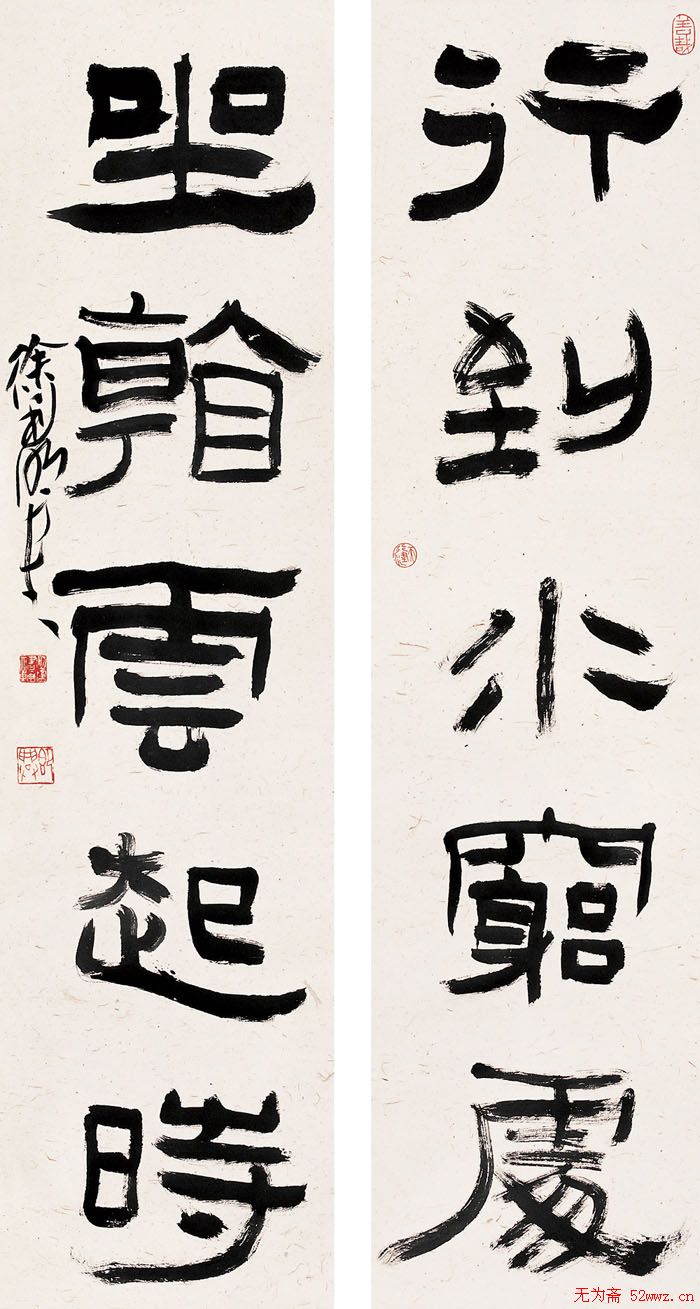 行到水窮處
坐看雲起時
徐利明
善哉
无为斋 52wwz.cn